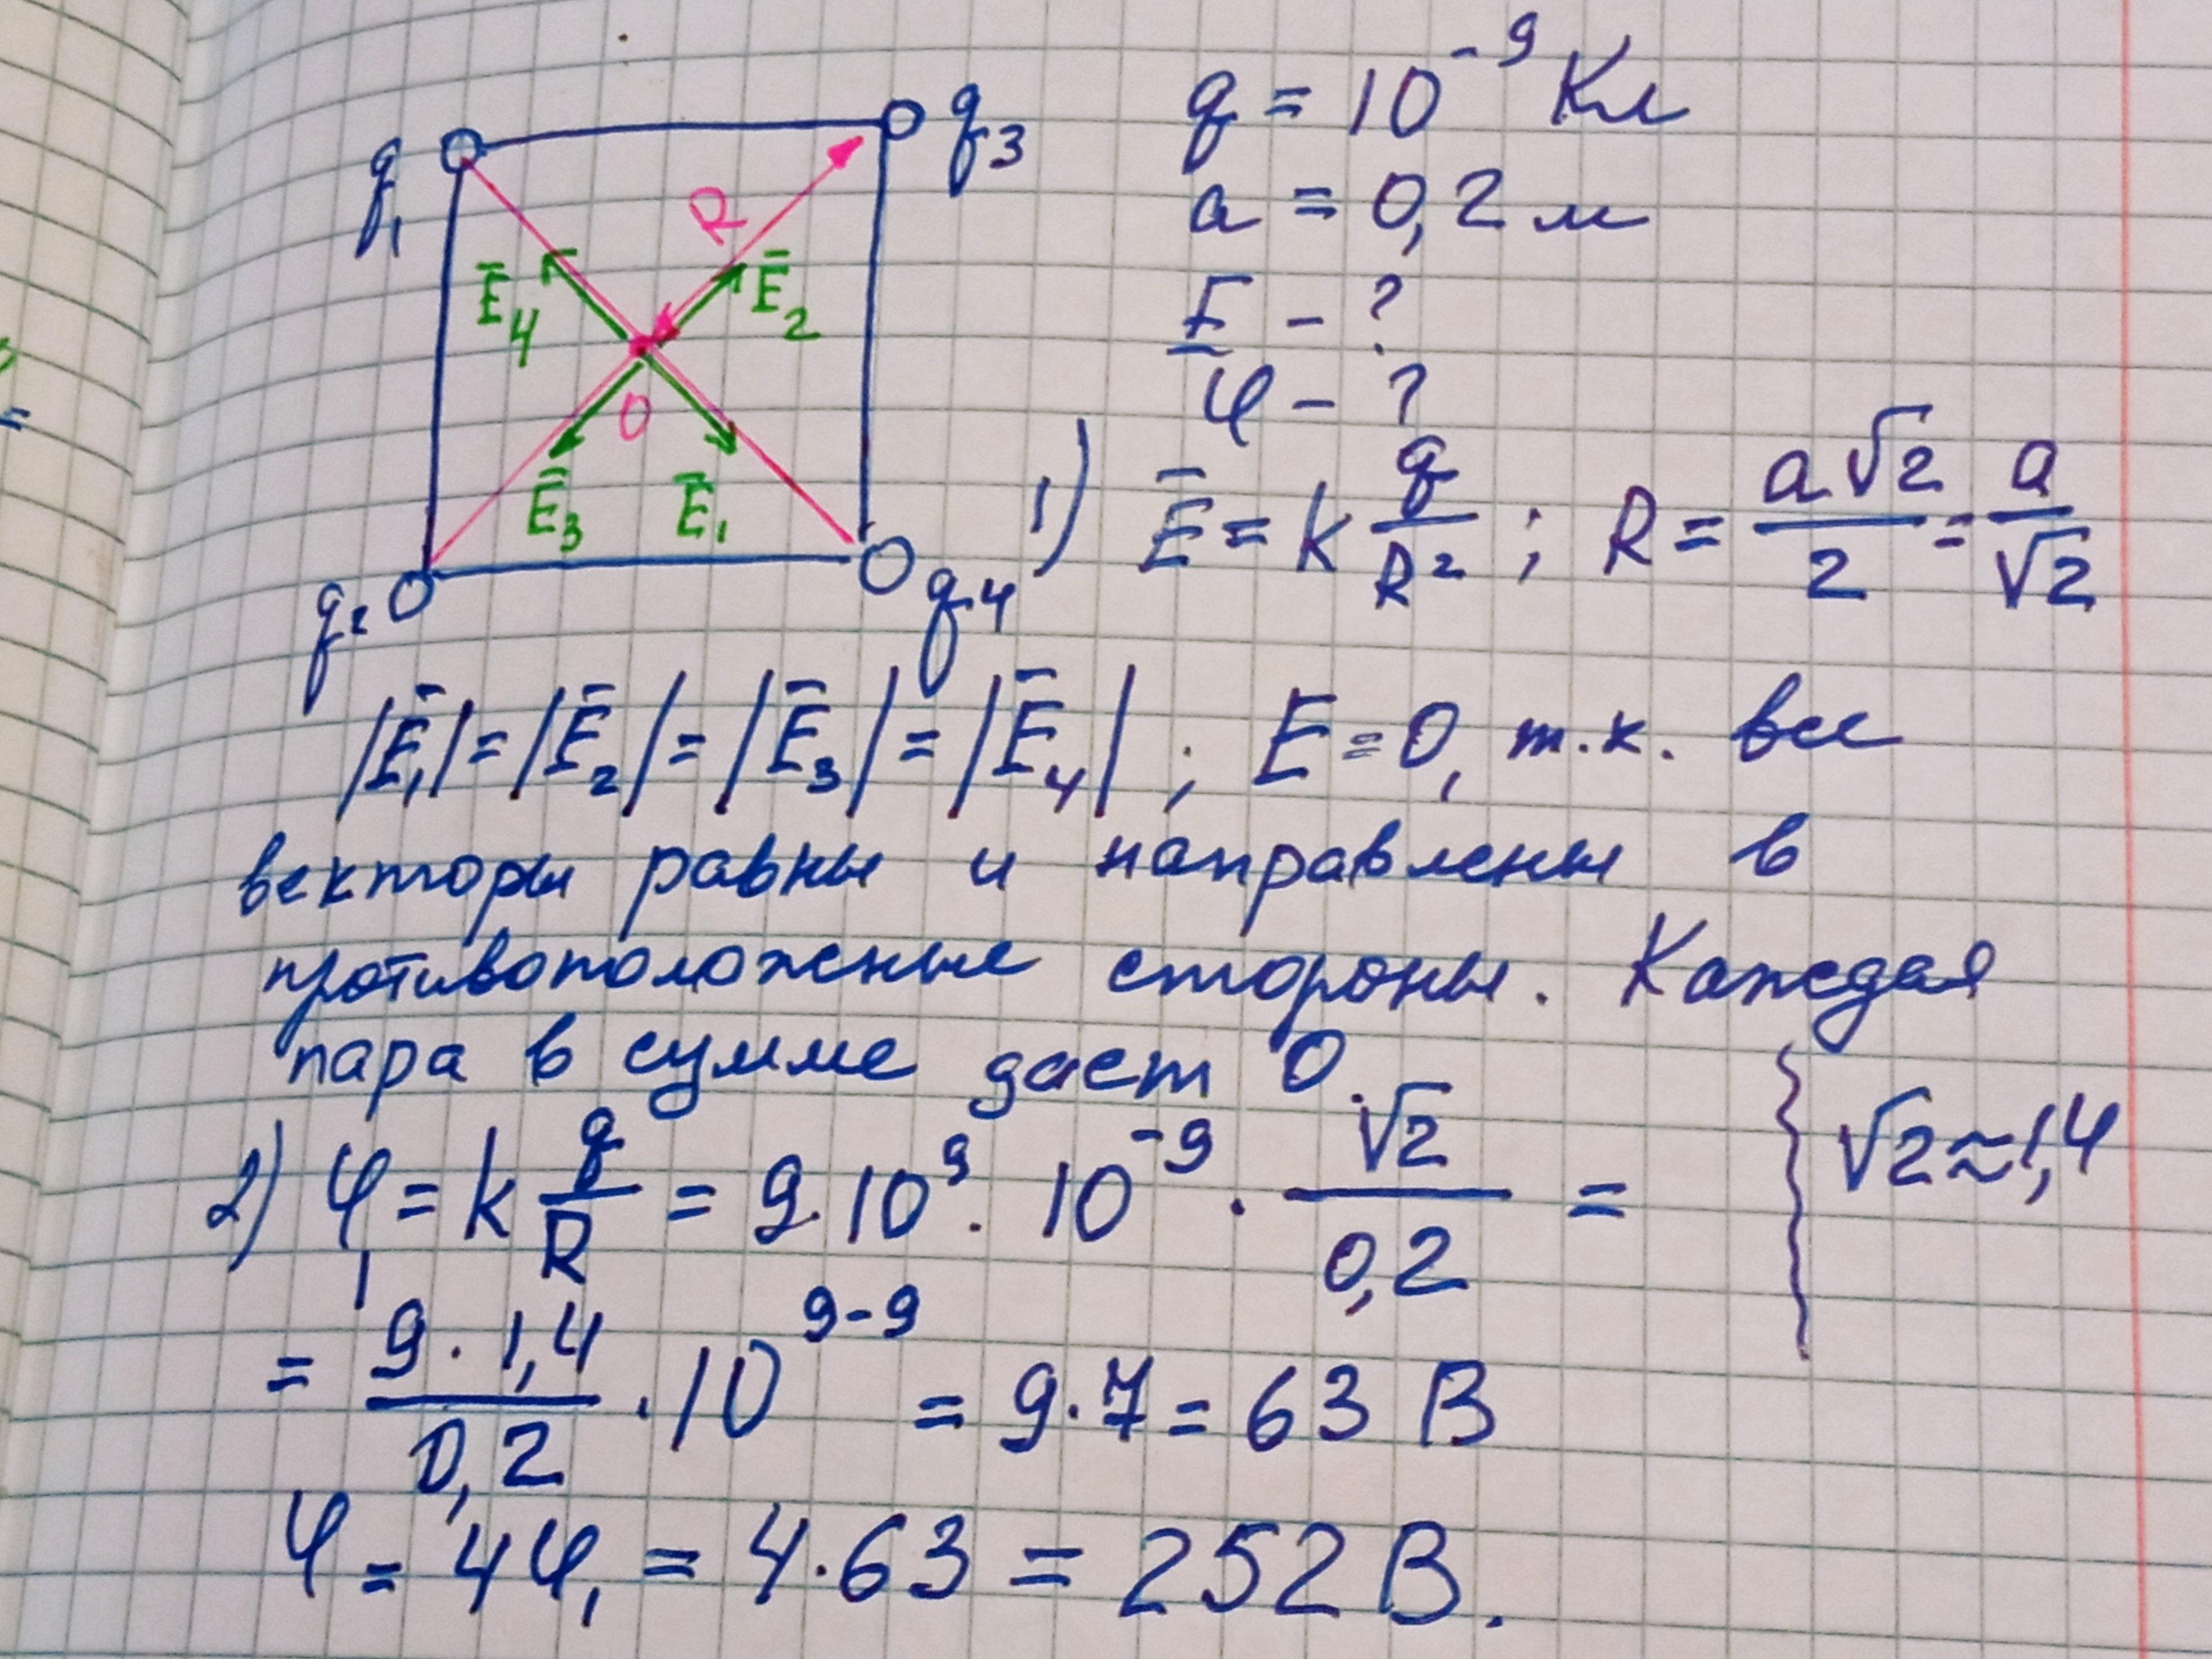 q₁
q₃
R
E̅₄
E̅₂
O
E̅₃
E̅₁
q₂
q₄
q = 10⁻⁹ Кл
a = 0,2 м
E - ?
φ - ?
1) E̅ = k q/R² ; R = a√2/2 = a/√2
|E̅₁| = |E̅₂| = |E̅₃| = |E̅₄| ; E = 0, т.к. все
векторы равны и направлены в
противоположные стороны. Каждая
пара в сумме дает 0.
2) φ₁ = k q/R = 9·10⁹ · 10⁻⁹ · √2/0,2 =
√2 ≈ 1,4
= 9·1,4/0,2 · 10⁹⁻⁹ = 9·7 = 63 В
φ = 4φ₁ = 4·63 = 252 В.